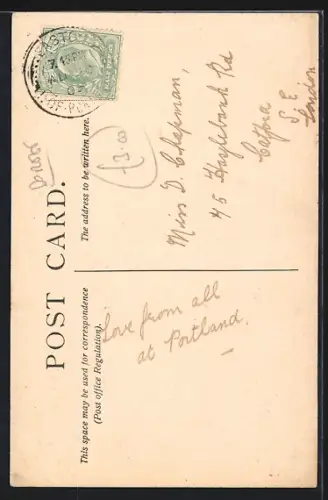 POST CARD.
This space may be used for correspondence
(Post office Regulation).
The address to be written here.
Love from all
at Portland.
Miss D. Chapman,
45 Hazelbank Rd
Catford
S. E
London
£3.00